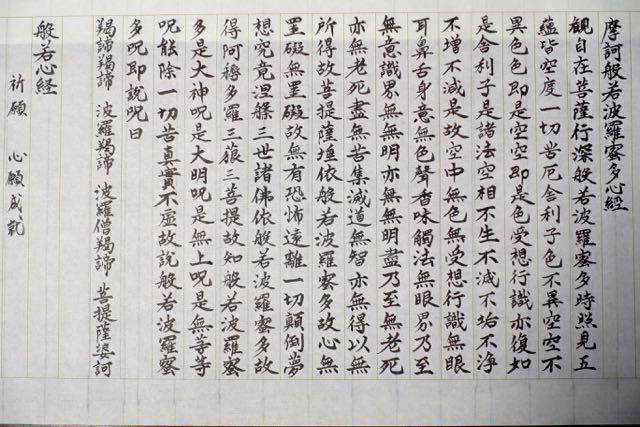 摩訶般若波羅蜜多心経
観自在菩薩行深般若波羅蜜多時照見五
蘊皆空度一切苦厄舎利子色不異空空不
異色色即是空空即是色受想行識亦復如
是舎利子是諸法空相不生不滅不垢不浄
不増不減是故空中無色無受想行識無眼
耳鼻舌身意無色聲香味觸法無眼界乃至
無意識界無無明亦無無明盡乃至無老死
亦無老死盡無苦集滅道無智亦無得以無
所得故菩提薩埵依般若波羅蜜多故心無
罣礙無罣礙故無有恐怖遠離一切顛倒夢
想究竟涅槃三世諸佛依般若波羅蜜多故
得阿耨多羅三藐三菩提故知般若波羅蜜
多是大神呪是大明呪是無上呪是無等等
呪能除一切苦真實不虚故説般若波羅蜜
多呪即説呪曰
羯諦羯諦 波羅羯諦 波羅僧羯諦 菩提薩婆訶
般若心経
祈願 心願成就